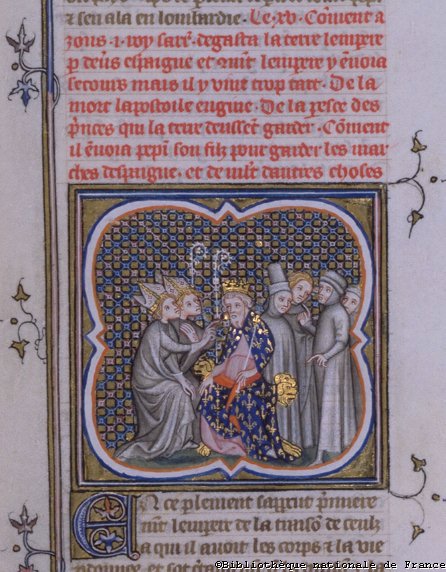 & sen ala en lombardie · Le .xv. Coment a
zons .i. roy sarr. degasta la terre lempere
p deuers espaigne et lempere y enuoia
secours mais il y vint trop tart · De la
mort lapostoile eugine · De la des
princes qui la terre deussent garder · Coment
il enuoia pepin son filz pour garder les mar
ches despaigne · et de dautres choses
En ce plement sapparut premiere
ment lempere de la traison de ceulz
a qui il auoit les corps & la vie
donnee · et sot
©Bibliothèque nationale de Franc